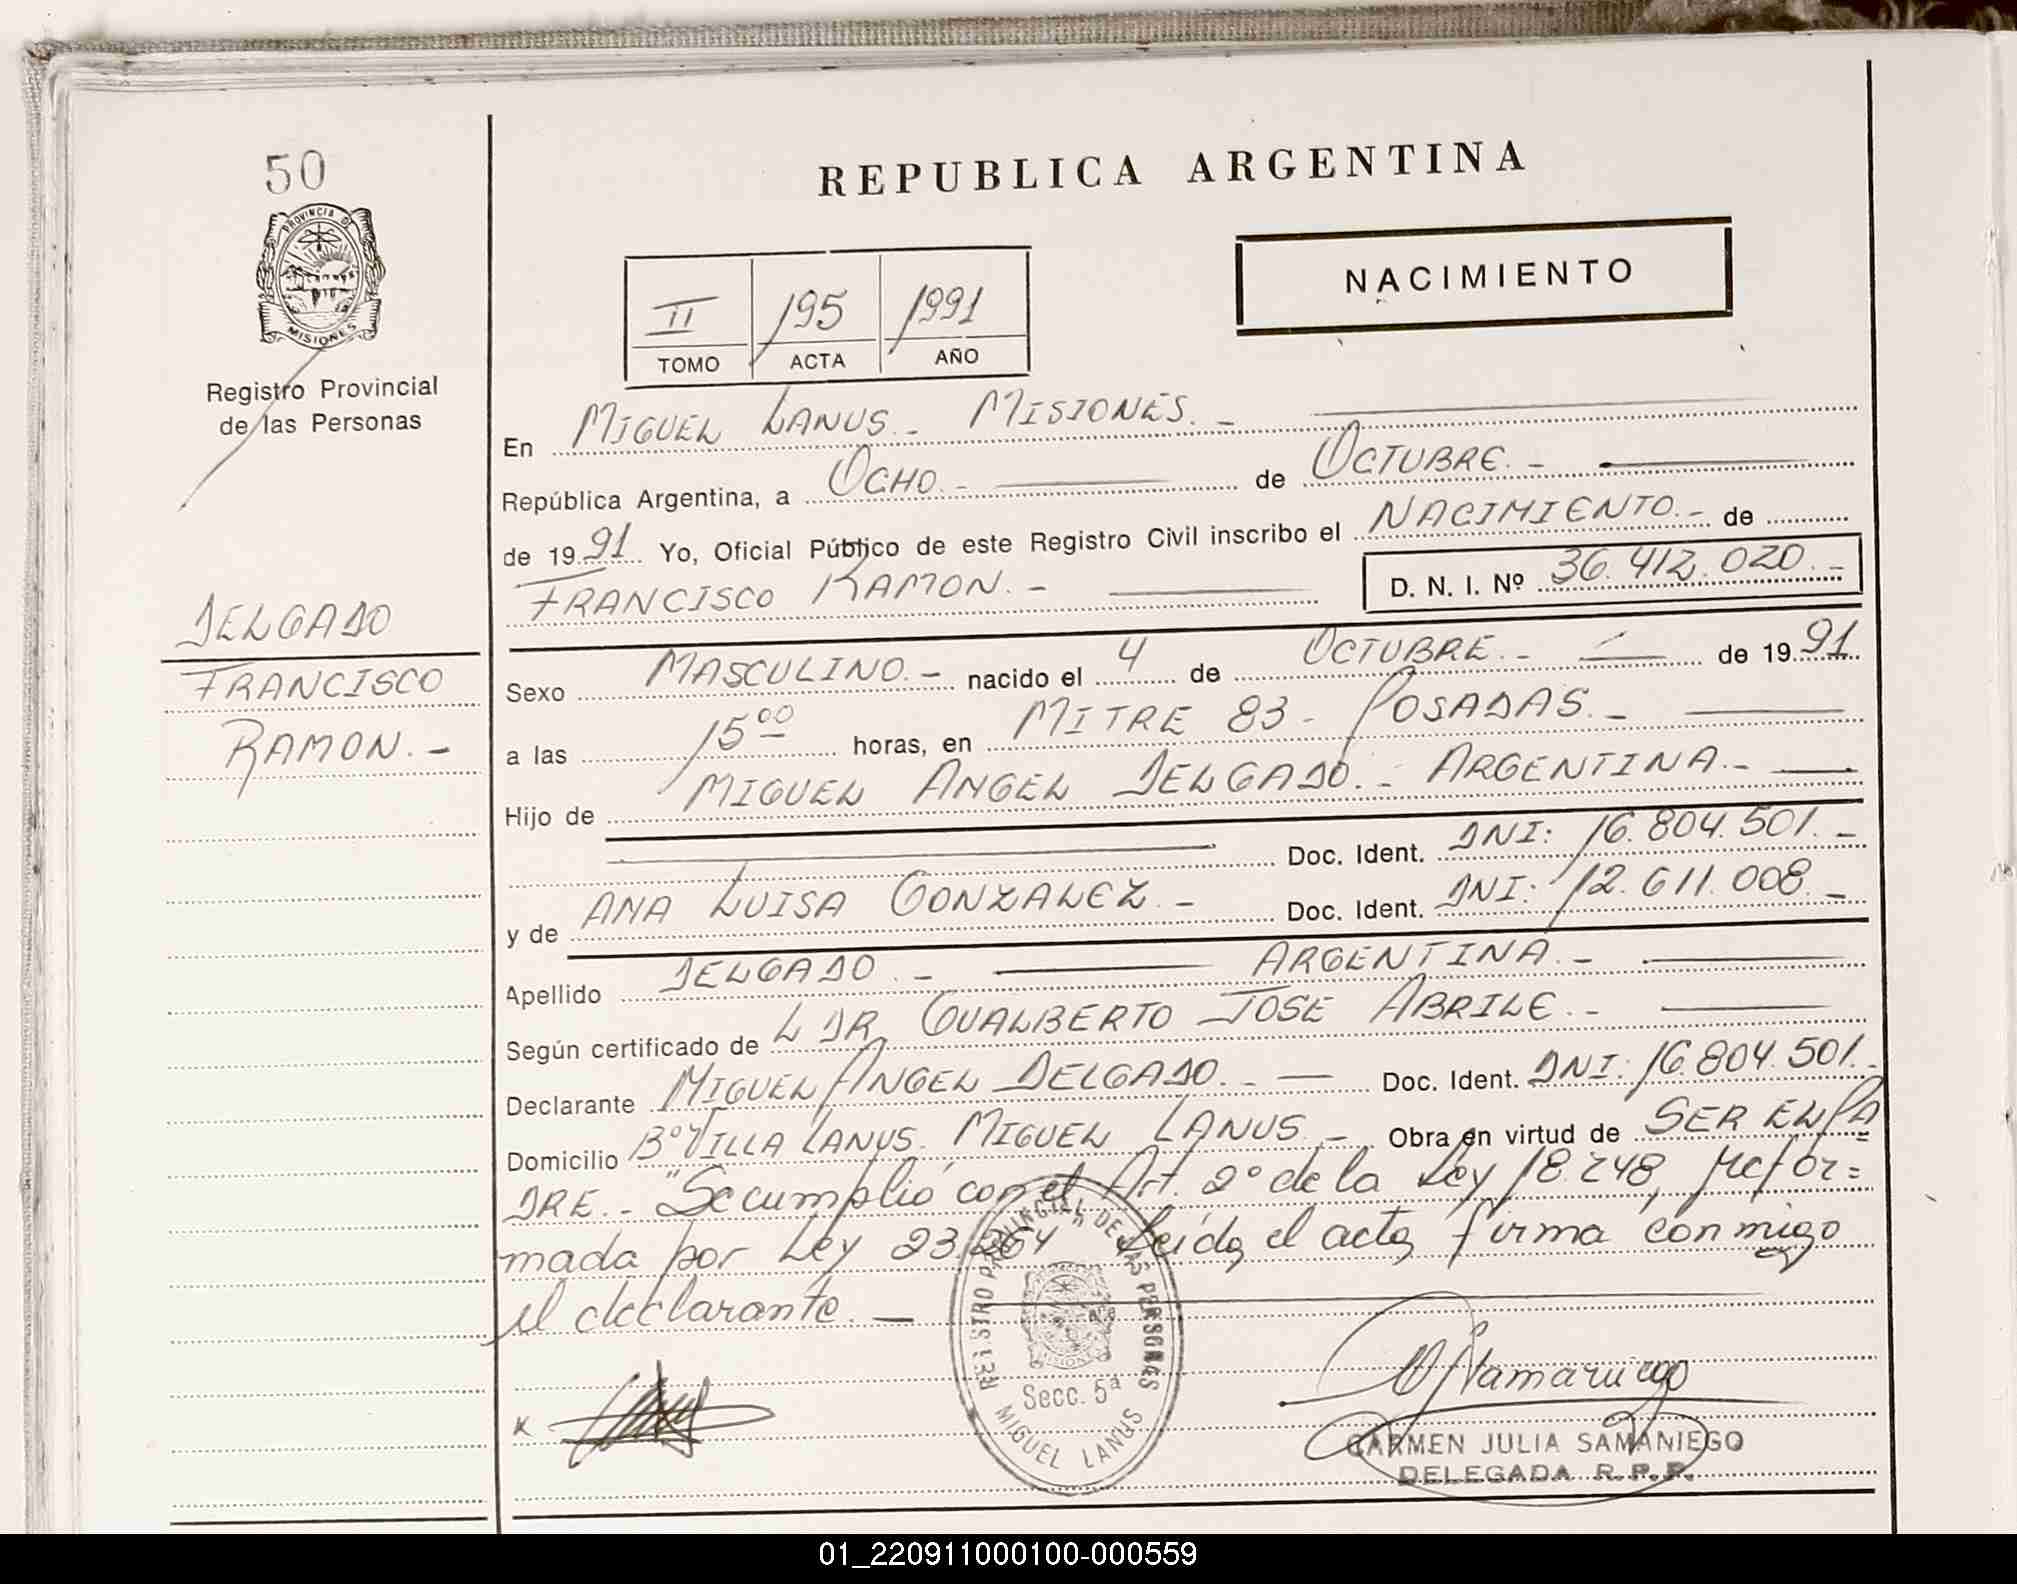 50
PROVINCIA DE
MISIONES
Registro Provincial
de las Personas
DELGADO
FRANCISCO
RAMON.-
REPUBLICA ARGENTINA
NACIMIENTO
II 195 1991
TOMO ACTA AÑO
En MIGUEL LANUS.- MISIONES.-
República Argentina, a OCHO.- de OCTUBRE.-
de 1991 Yo, Oficial Público de este Registro Civil inscribo el NACIMIENTO.- de
FRANCISCO RAMON.- D. N. I. Nº 36.412.020.-
Sexo MASCULINO.- nacido el 4 de OCTUBRE.- de 1991
a las 15 00 horas, en MITRE 83 - POSADAS.-
Hijo de MIGUEL ANGEL DELGADO.- ARGENTINA.-
Doc. Ident. DNI: 16.804.501.-
y de ANA LUISA GONZALEZ.- Doc. Ident. DNI: 12.611.008.-
Apellido DELGADO.- ARGENTINA.-
Según certificado de L DR GUALBERTO JOSE ABRILE.-
Declarante MIGUEL ANGEL DELGADO.- Doc. Ident. DNI: 16.804.501.-
Domicilio Bº VILLA LANUS. MIGUEL LANUS.- Obra en virtud de SER EL PA
DRE.- "Se cumplió con el Art. 2º de la Ley 18.248, refor=
mada por Ley 23.264 Leída el acta, firma conmigo
el declarante.-
REGISTRO PROVINCIAL DE LAS PERSONAS
MISIONES
Secc. 5ª
MIGUEL LANUS
CARMEN JULIA SAMANIEGO
DELEGADA R.P.P.
01_220911000100-000559